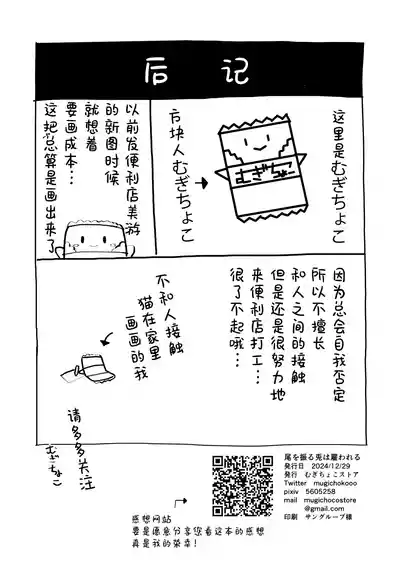 后记
这里是むぎちょこ
むぎちょこ
方块人むぎちょこ
以前发便利店美游
的新图时候
就想着
要画成本…
这把总算是画出来了
因为总会自我否定
所以不擅长
和人之间的接触
但是还是很努力地
来便利店打工…
很了不起哦…
不和人接触
猫在家里
画画的我
请多多关注
むぎちょこ
尾を振る兎は雇われる
発行日 2024/12/29
発行 むぎちょこストア
Twitter mugichokooo
pixiv 5605258
mail mugichocostore
@gmail.com
印刷 サングループ様
感想网站
要是愿意分享您看这本的感想
真是我的荣幸!